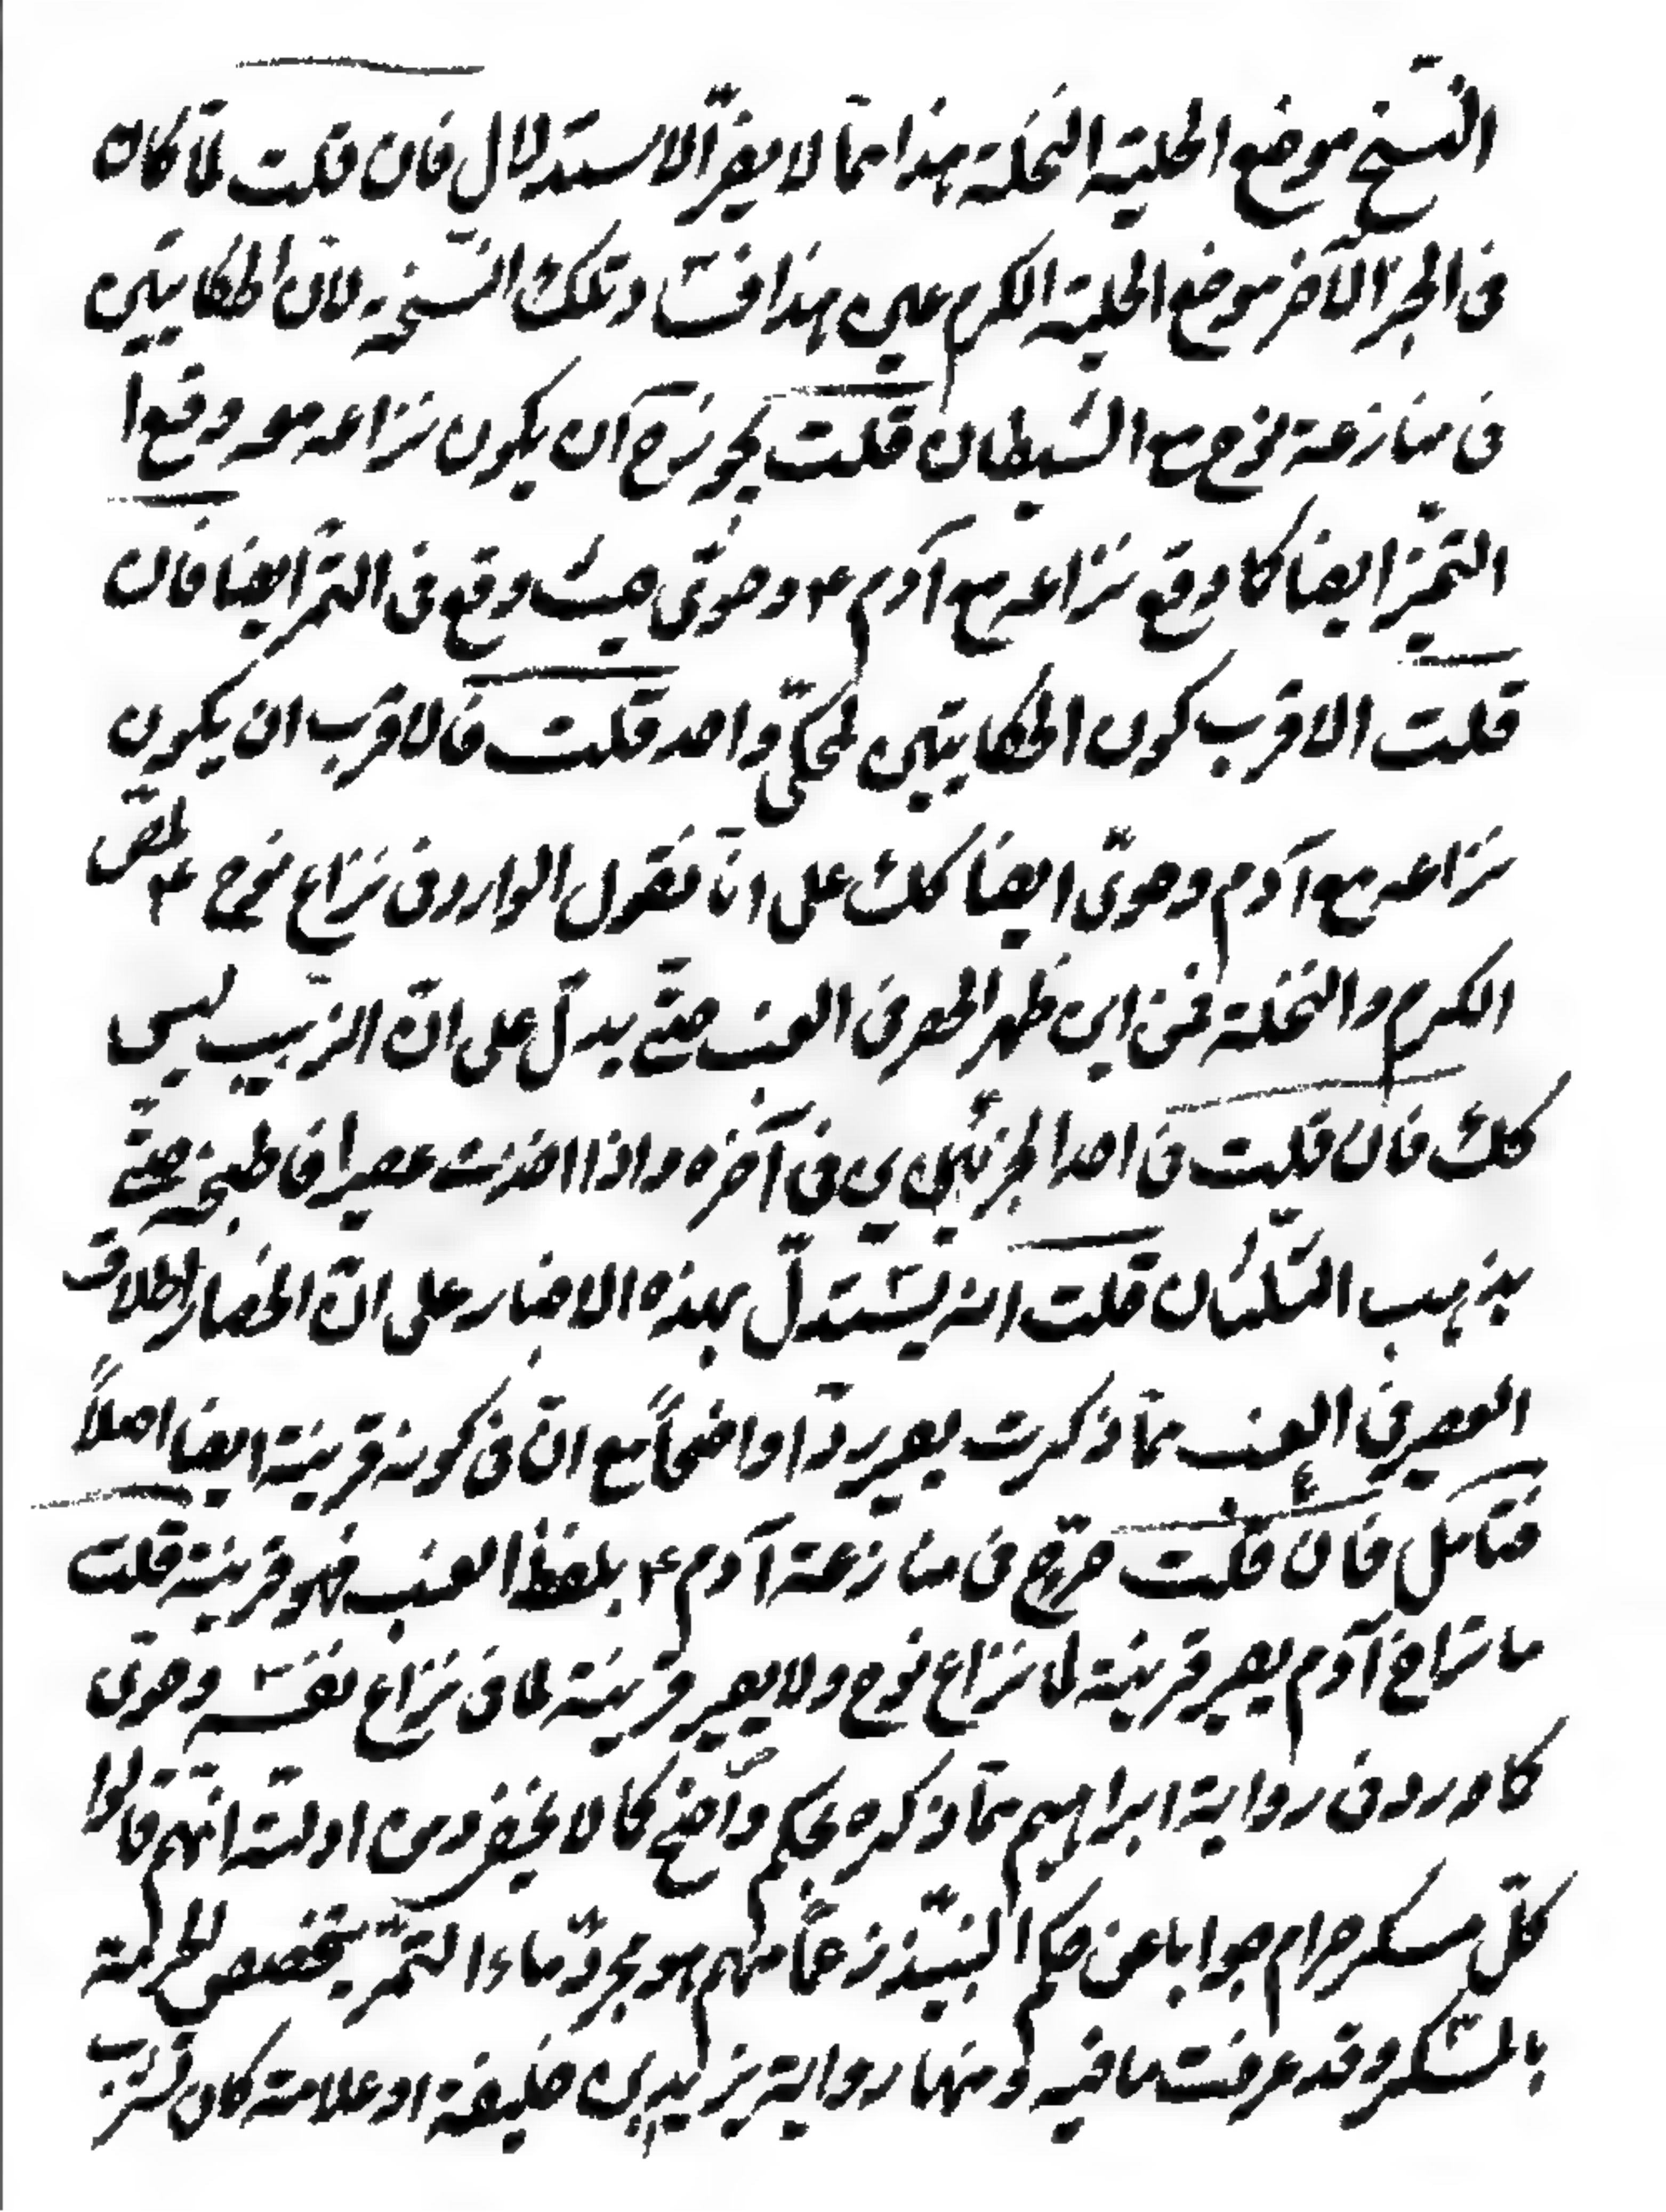 النسخ موضع الحلية النخلة هذا مما لا يضر الاستدلال فان قلت لما كان
فى الخبر الآخر موضع الحلية الكرم عين هذا فساد تلك النسخة لان الحكايتين
فى منازعة نوح مع الشيطان قلت يجوز ح ان يكون نزاعه معه وقع فى
التمر ايضا كما وقع نزاعه مع آدم ع وحوى حيث وقع فى التمر ايضا فان
قلت الاقرب كون الحكايتين لمحكى واحد قلت فالاقرب ان يكون
نزاعه مع آدم وحوى ايضا كك على انا نقول الوارد فى نزاع نوح ع
الكرم والنخلة فمن اين ظهر الحصر فى العنب حتى يدل على ان الزبيب ليس
كك فان قلت فى احد الخبرين فى آخره واذا اخذت عصيرا فاطبخه حتى
يذهب الثلثان قلت انه يستدل بهذه الاخبار على ان انحصار اطلاق
العصير فى العنب مما ذكرت يصير ردا واضحا مع ان فى كونه قرينة ايضا اصلا
فتامل فان قلت صرح فى منازعة آدم ع بلفظ العنب فهو قرينة قلت
ما نزاع آدم يصير قرينة لما نزاع نوح ولا يصير قرينة لما فى نزاع نفسه وحوى
كما ورد فى رواية ابراهيم مما ذكره تحكم واضح كما لا يخفى ومن ادلته انهم قالوا
كل مسكر حرام جوابا عن حكم النبيذ زعما منهم هو مجرد ماء التمر يتخصص الحرمة
بالمسكر وقد عرفت ما فيه ومنها رواية يزيد بن خليفة او علامة كان تشرب